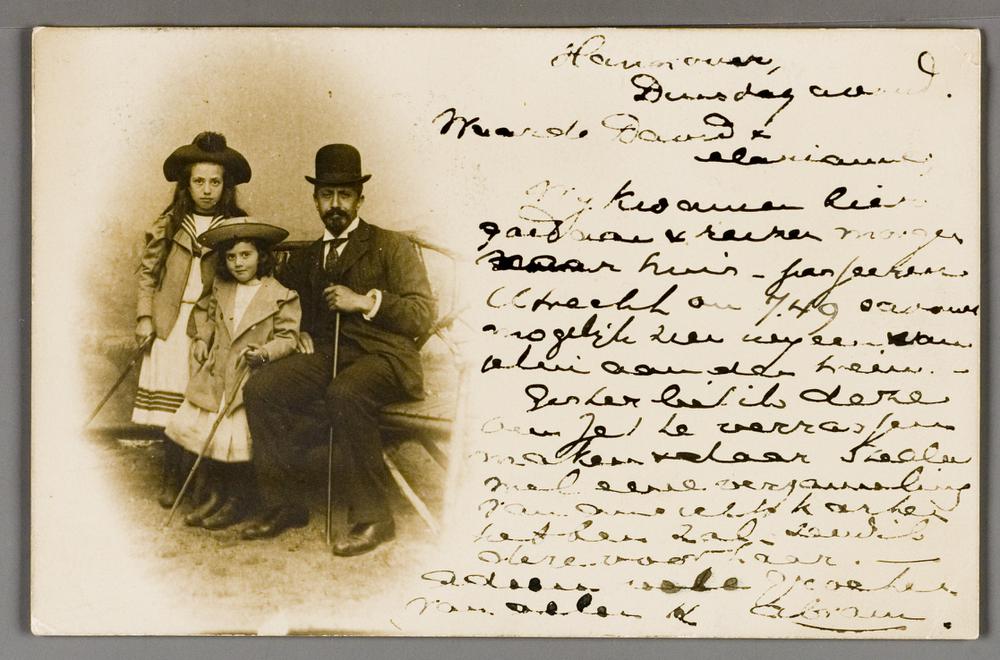 Hannover,
Dinsdag avond.
Waarde David &
Marianne,
Wy kwamen hier
goed aan & reizen morgen
naar huis - passeeren
Utrecht om 7.49
mogelyk zien wy een van
aan den trein. -
Gister liet ik deze
om Jet te verrassen
maken & daar Stella
met eene verzameling
van
hebben zal zend ik
deze voor haar. -
Adieu vele groeten
van allen & Abram